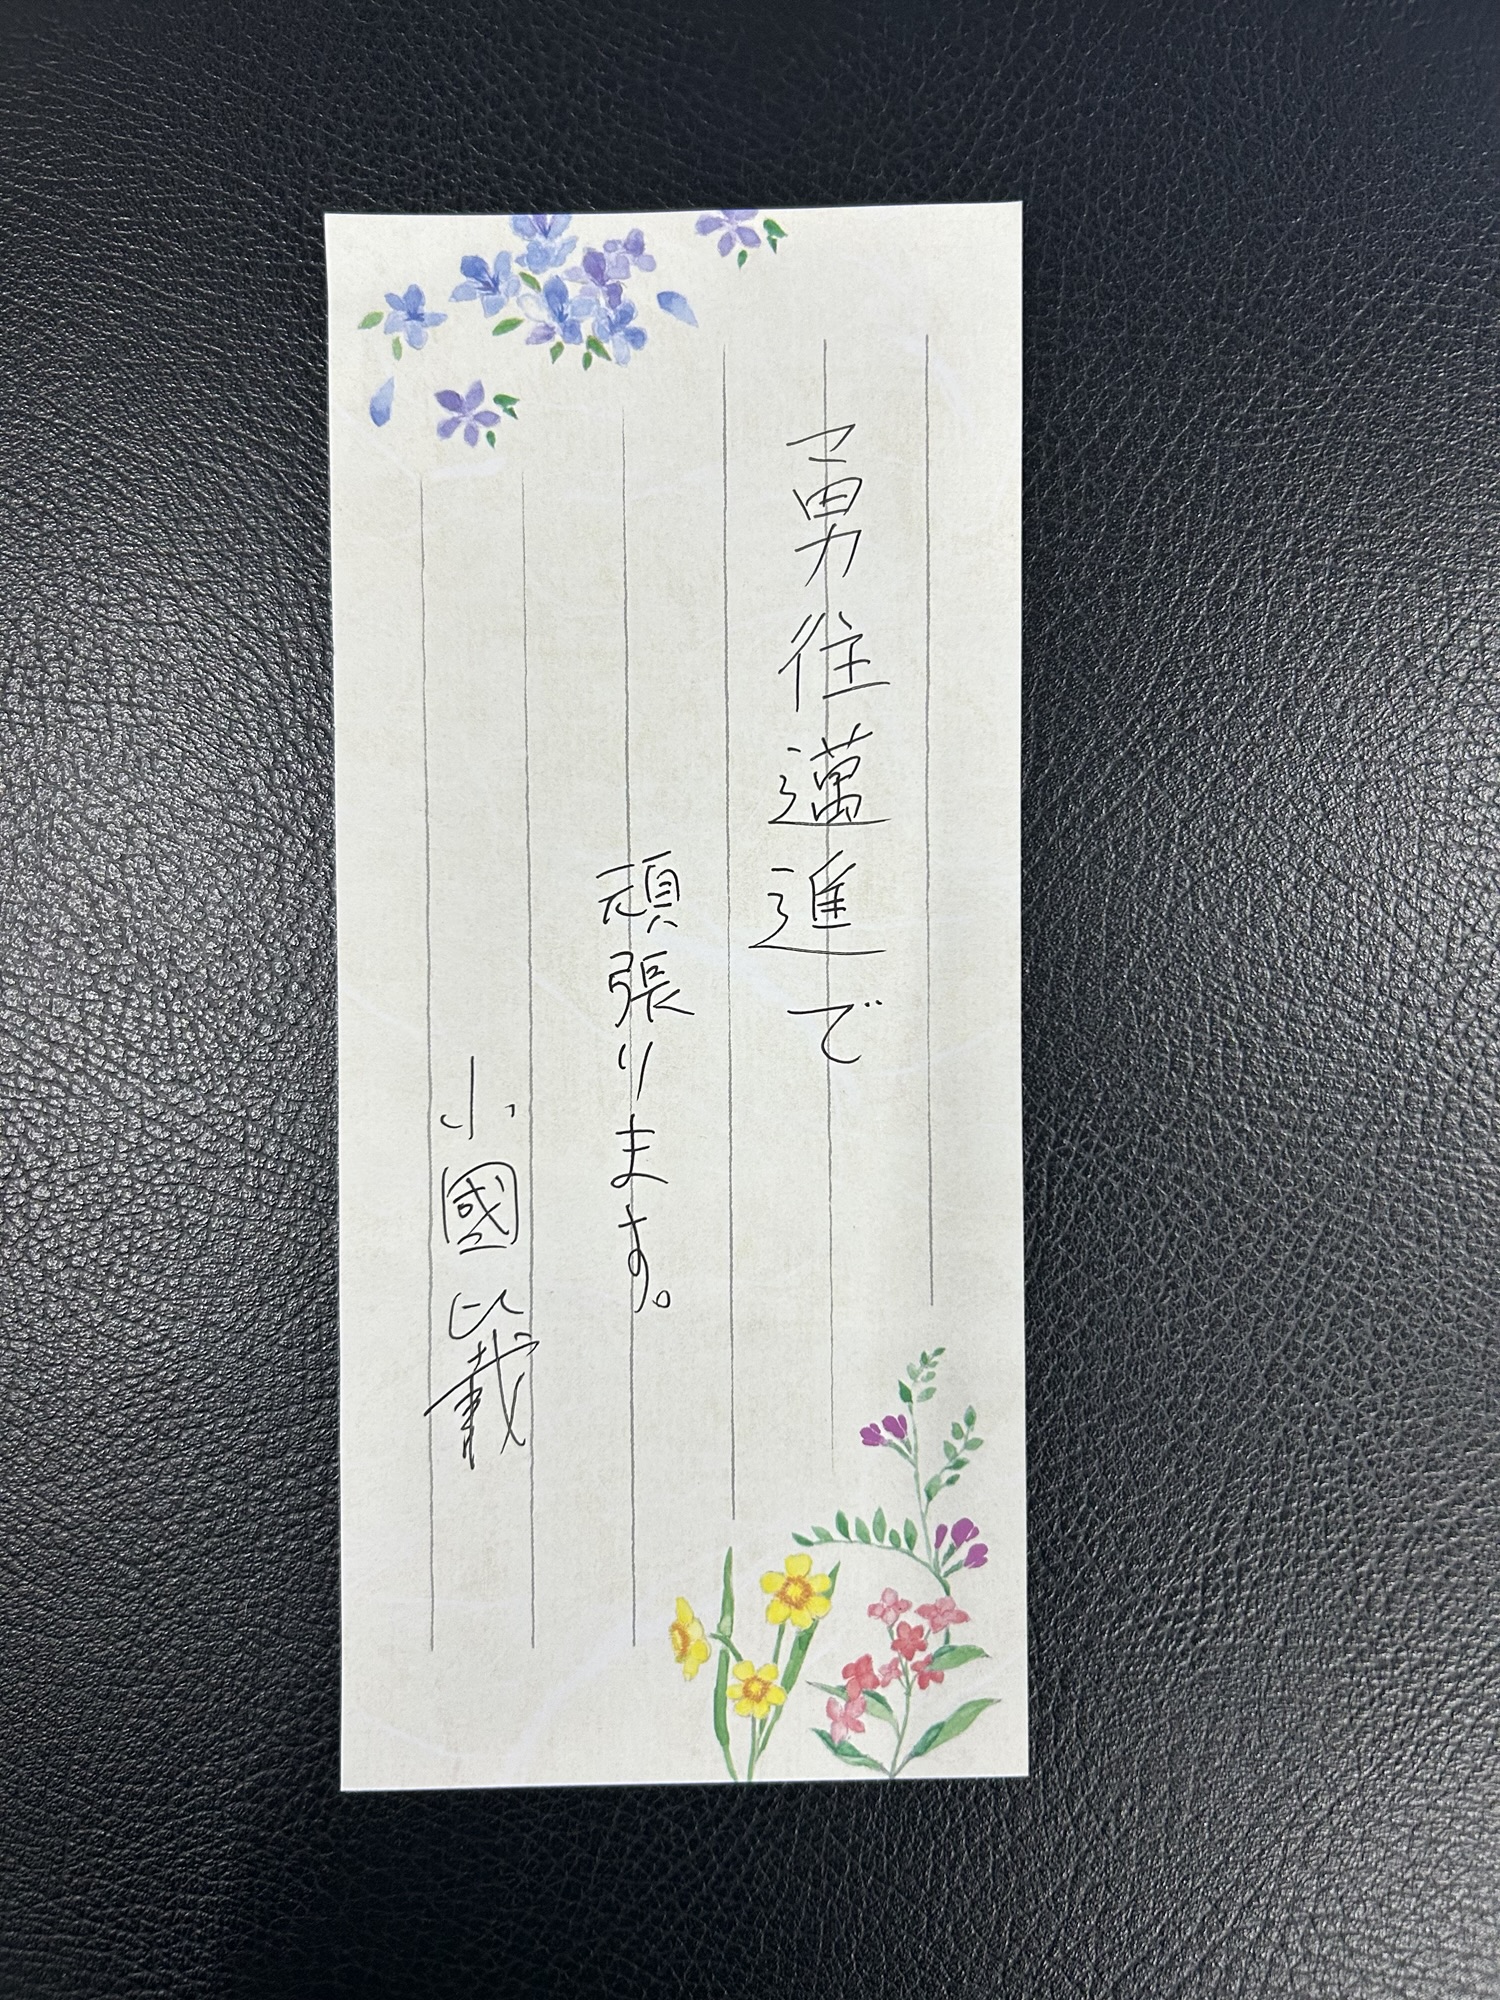 勇往邁進で
頑張ります。
小國以載